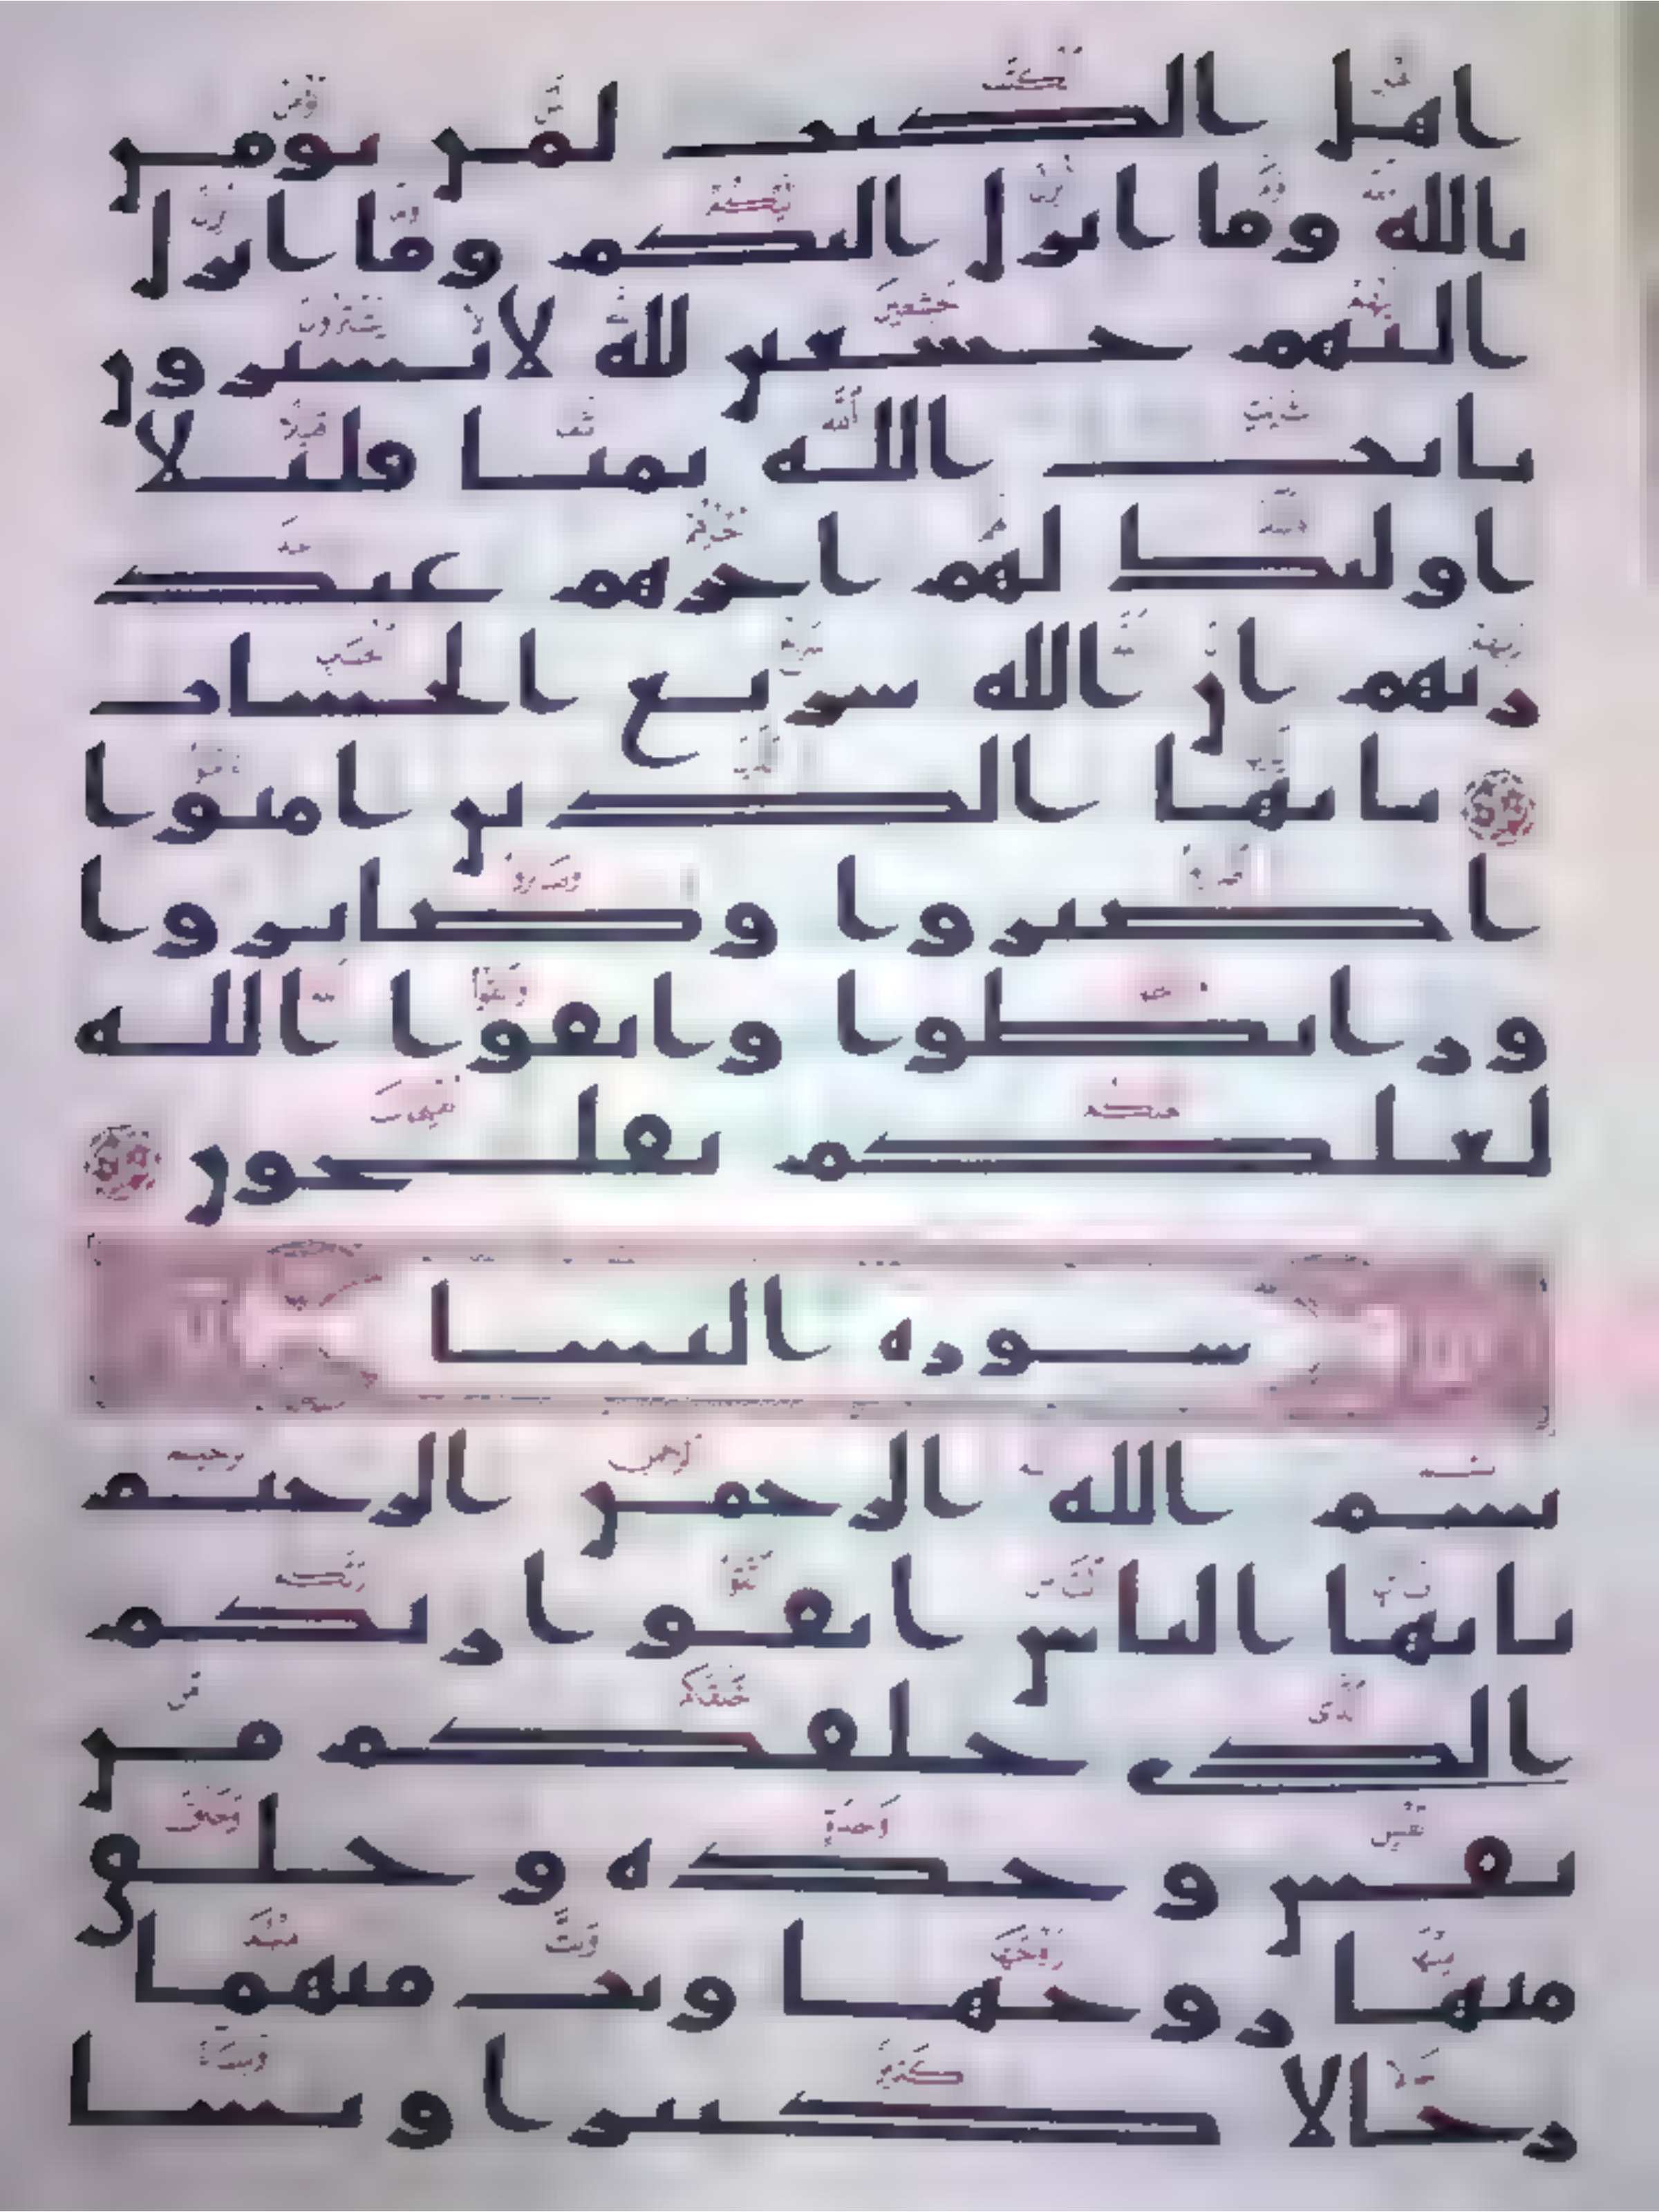 اهل الكتب لمن يومن
بالله وما انزل اليكم وما انزل
اليهم خشعين لله لا يشترون
بايت الله ثمنا قليلا
اوليك لهم اجرهم عند
ربهم ان الله سريع الحساب
يايها الذين امنوا
اصبروا وصابروا
ورابطوا واتقوا الله
لعلكم تفلحون
سورة النسا
بسم الله الرحمن الرحيم
يايها الناس اتقوا ربكم
الذي خلقكم من
نفس وحدة وخلق
منها زوجها وبث منهما
رجالا كثيرا ونسا